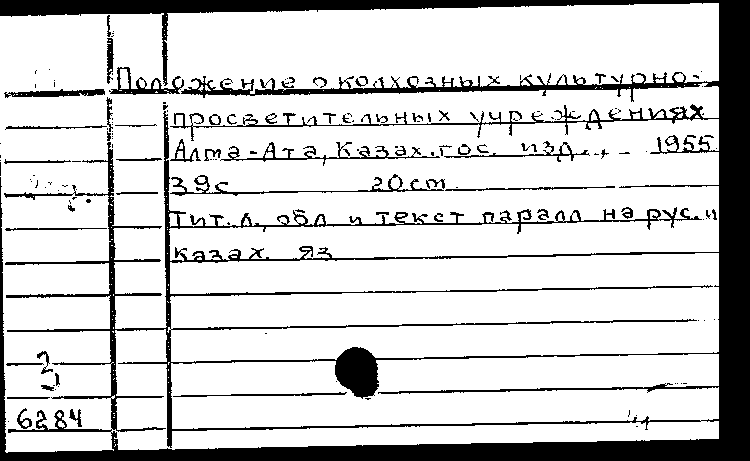 Положение о колхозных культурно-
просветительных учреждениях
Алма-Ата, Казах.гос. изд., - 1955
39с 20cm
Тит.л., обл и текст паралл на рус. и
казах. яз
3
6284